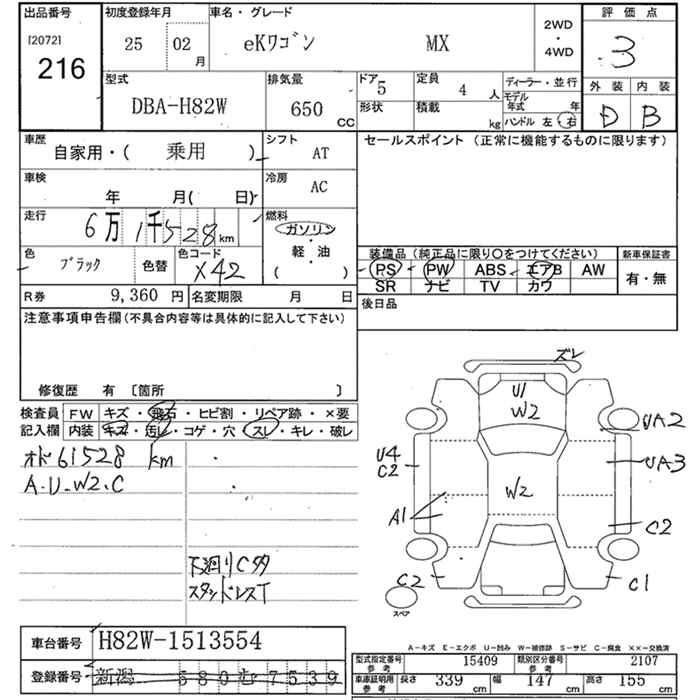 出品番号
[2072]
216
初度登録年月
25 02 月
車名・グレード
eKワゴン MX
2WD
・
4WD
評価点
3
外装 内装
D B
型式
DBA-H82W
排気量
650 CC
ドア 5
形状
定員 4 人
積載 kg
ディーラー・並行
モデル年式 年
ハンドル 左・右
車歴
自家用・( 乗用 )
シフト
AT
車検
年 月( 日)
冷房
AC
走行
6万1千528 km
燃料
ガソリン
・
軽・油
( )
色
ブラック
色替
色コード
X42
R券 9,360 円
名変期限 月 日
セールスポイント (正常に機能するものに限ります)
装備品(純正品に限り○をつけてください)
PS PW ABS エアB AW
SR ナビ TV カワ
新車保証書
有・無
後日品
注意事項申告欄(不具合内容等は具体的に記入して下さい)
修復歴 有〔箇所 〕
検査員記入欄
FW キズ・飛石・ヒビ割・リペア跡・×要
内装 キズ・汚レ・コゲ・穴・スレ・キレ・破レ
オド61528 km
A-U-W2.C
下廻りC多
スタッドレスT
ズレ
U1
W2
UA2
U4
C2
UA3
W2
A1
C2
C2
C1
スペア
A-キズ E-エクボ U-凹み W-補修跡 S-サビ C-腐食 ××-交換済
車台番号 H82W-1513554
登録番号 新潟 580む7539
型式指定番号 参考 15409
類別区分番号 参考 2107
車庫証明用 参考
長さ 339 cm
幅 147 cm
高さ 155 cm